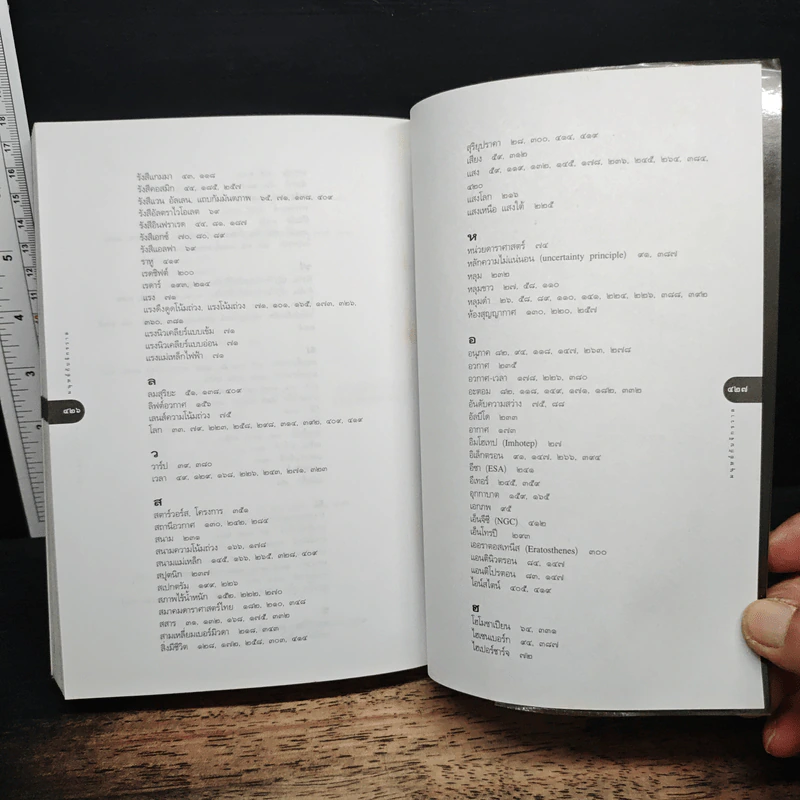 รังสีแกมมา ๔๓, ๑๑๘
รังสีคอสมิก ๔๔, ๑๘๕, ๒๕๗
รังสีแวน อัลเลน, แถบกัมมันตภาพ ๖๕, ๗๑, ๑๓๘, ๔๐๙
รังสีอัลตราไวโอเลต ๖๙
รังสีอินฟราเรด ๔๔, ๘๑, ๑๘๗
รังสีเอกซ์ ๗๐, ๘๐, ๘๙
รังสีแอลฟา ๖๙
ราหู ๔๑๙
เรดชิฟต์ ๒๐๐
เรดาร์ ๑๙๓, ๒๑๔
แรง ๗๑
แรงดึงดูดโน้มถ่วง, แรงโน้มถ่วง ๗๑, ๑๐๑, ๑๖๕, ๑๗๓, ๓๒๖,
๓๖๐, ๓๘๑
แรงนิวเคลียร์แบบเข้ม ๗๑
แรงนิวเคลียร์แบบอ่อน ๗๑
แรงแม่เหล็กไฟฟ้า ๗๑
ล
ลมสุริยะ ๕๑, ๑๓๘, ๔๐๙
ลิฟต์อวกาศ ๑๕๖
เลนส์ความโน้มถ่วง ๗๕
โลก ๓๓, ๗๙, ๒๒๓, ๒๕๘, ๒๙๘, ๓๑๔, ๓๙๒, ๔๐๙, ๔๑๙
ว
วาร์ป ๓๙, ๓๘๐
เวลา ๔๙, ๑๒๙, ๑๖๘, ๒๒๖, ๒๔๓, ๒๗๑, ๓๒๓
ส
สตาร์วอร์ส, โครงการ ๓๕๑
สถานีอวกาศ ๑๓๐, ๒๔๒, ๒๘๔
สนาม ๒๓๑
สนามความโน้มถ่วง ๑๖๖, ๑๗๘
สนามแม่เหล็ก ๑๔๕, ๑๖๖, ๒๖๕, ๓๒๘, ๔๐๙
สปุตนิก ๒๓๗
สเปกตรัม ๑๙๙, ๒๒๖
สภาพไร้น้ำหนัก ๑๕๒, ๒๒๒, ๒๗๐
สมาคมดาราศาสตร์ไทย ๑๘๒, ๒๑๐, ๓๔๘
สสาร ๓๑, ๑๓๒, ๑๖๘, ๑๗๕, ๓๓๒
สามเหลี่ยมเบอร์มิวดา ๒๑๘, ๓๔๓
สิ่งมีชีวิต ๑๒๘, ๑๗๒, ๒๕๘, ๓๐๓, ๔๑๔
๔๒๖
สุริยุปราคา ๒๘, ๓๐๐, ๔๑๔, ๔๑๙
เสียง ๕๙, ๓๑๒
แสง ๕๙, ๑๑๙, ๑๓๒, ๑๔๕, ๑๗๘, ๒๓๖, ๒๔๕, ๒๖๔, ๓๘๔,
๔๒๐
แสงโลก ๒๑๖
แสงเหนือ แสงใต้ ๒๒๕
ห
หน่วยดาราศาสตร์ ๗๔
หลักความไม่แน่นอน (uncertainty principle) ๙๑, ๓๘๗
หลุม ๒๓๒
หลุมขาว ๒๗, ๕๘, ๑๑๐
หลุมดำ ๒๖, ๕๘, ๘๙, ๑๑๐, ๑๔๑, ๒๒๔, ๒๒๖, ๓๘๘, ๓๙๒
ห้องสุญญากาศ ๑๓๐, ๒๒๐, ๒๕๗
อ
อนุภาค ๘๒, ๙๔, ๑๑๘, ๑๔๗, ๒๖๓, ๒๗๘
อวกาศ ๒๓๕
อวกาศ-เวลา ๑๗๘, ๒๒๖, ๓๘๐
อะตอม ๘๒, ๑๑๘, ๑๔๙, ๑๗๑, ๑๘๒, ๓๓๒
อันดับความสว่าง ๗๕, ๘๘
อัลบีโด ๒๓๓
อากาศ ๑๗๓
อิมโฮเทป (Imhotep) ๒๗
อิเล็กตรอน ๙๑, ๑๔๗, ๒๖๖, ๓๙๔
อีซา (ESA) ๒๔๑
อีเทอร์ ๒๔๕, ๓๕๙
อุกกาบาต ๑๕๙, ๑๖๕
เอกภพ ๙๕
เอ็นจีซี (NGC) ๔๑๒
เอ็นโทรปี ๒๙๓
เออราตอสเทนีส (Eratosthenes) ๓๐๐
แอนตินิวตรอน ๘๔, ๑๔๗
แอนติโปรตอน ๘๓, ๑๔๗
ไอน์สไตน์ ๔๐๕, ๔๑๙
ฮ
โฮโมซาเปียน ๖๔, ๓๓๑
ไฮเซนเบอร์ก ๙๔, ๓๘๗
ไฮเปอร์ชาร์จ ๗๒
๔๒๗